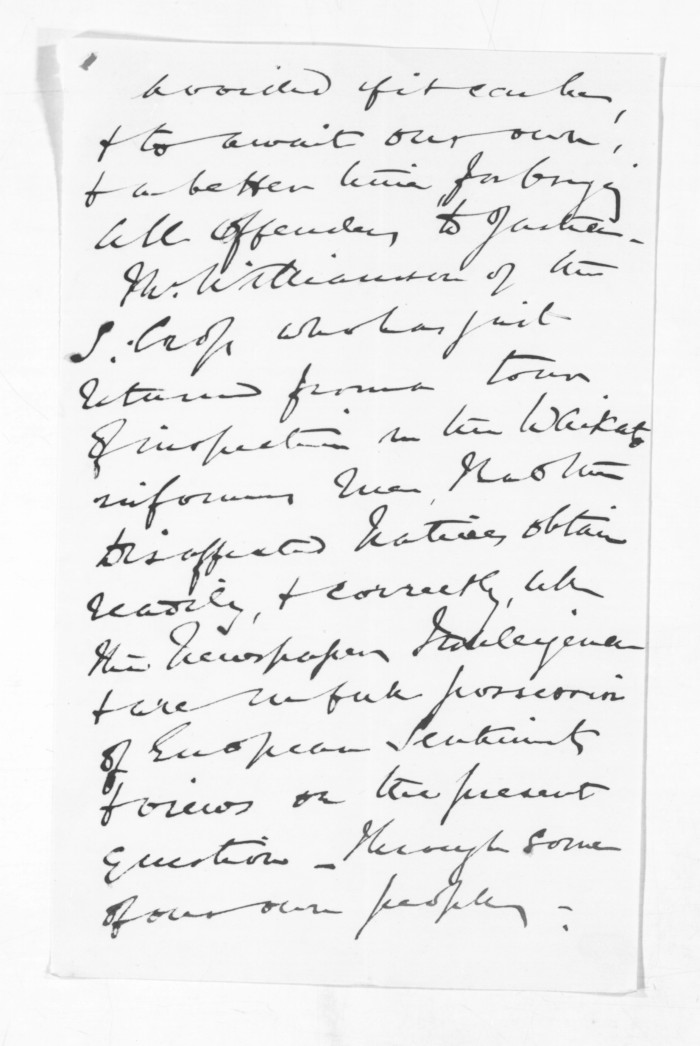 avoided if it can be,
& to await our own,
& a better time for bringing
all offenders to Justice -
Mr. Williamson of the
S. Cross who has just
returned from a tour
of inspection in the Waikato
informs me, that the
disaffected Natives obtain
readily, & correctly, all
the Newspaper Intelligence
& are in full possession
of European Sentiments
& views on the present
question - through some
of our own people -